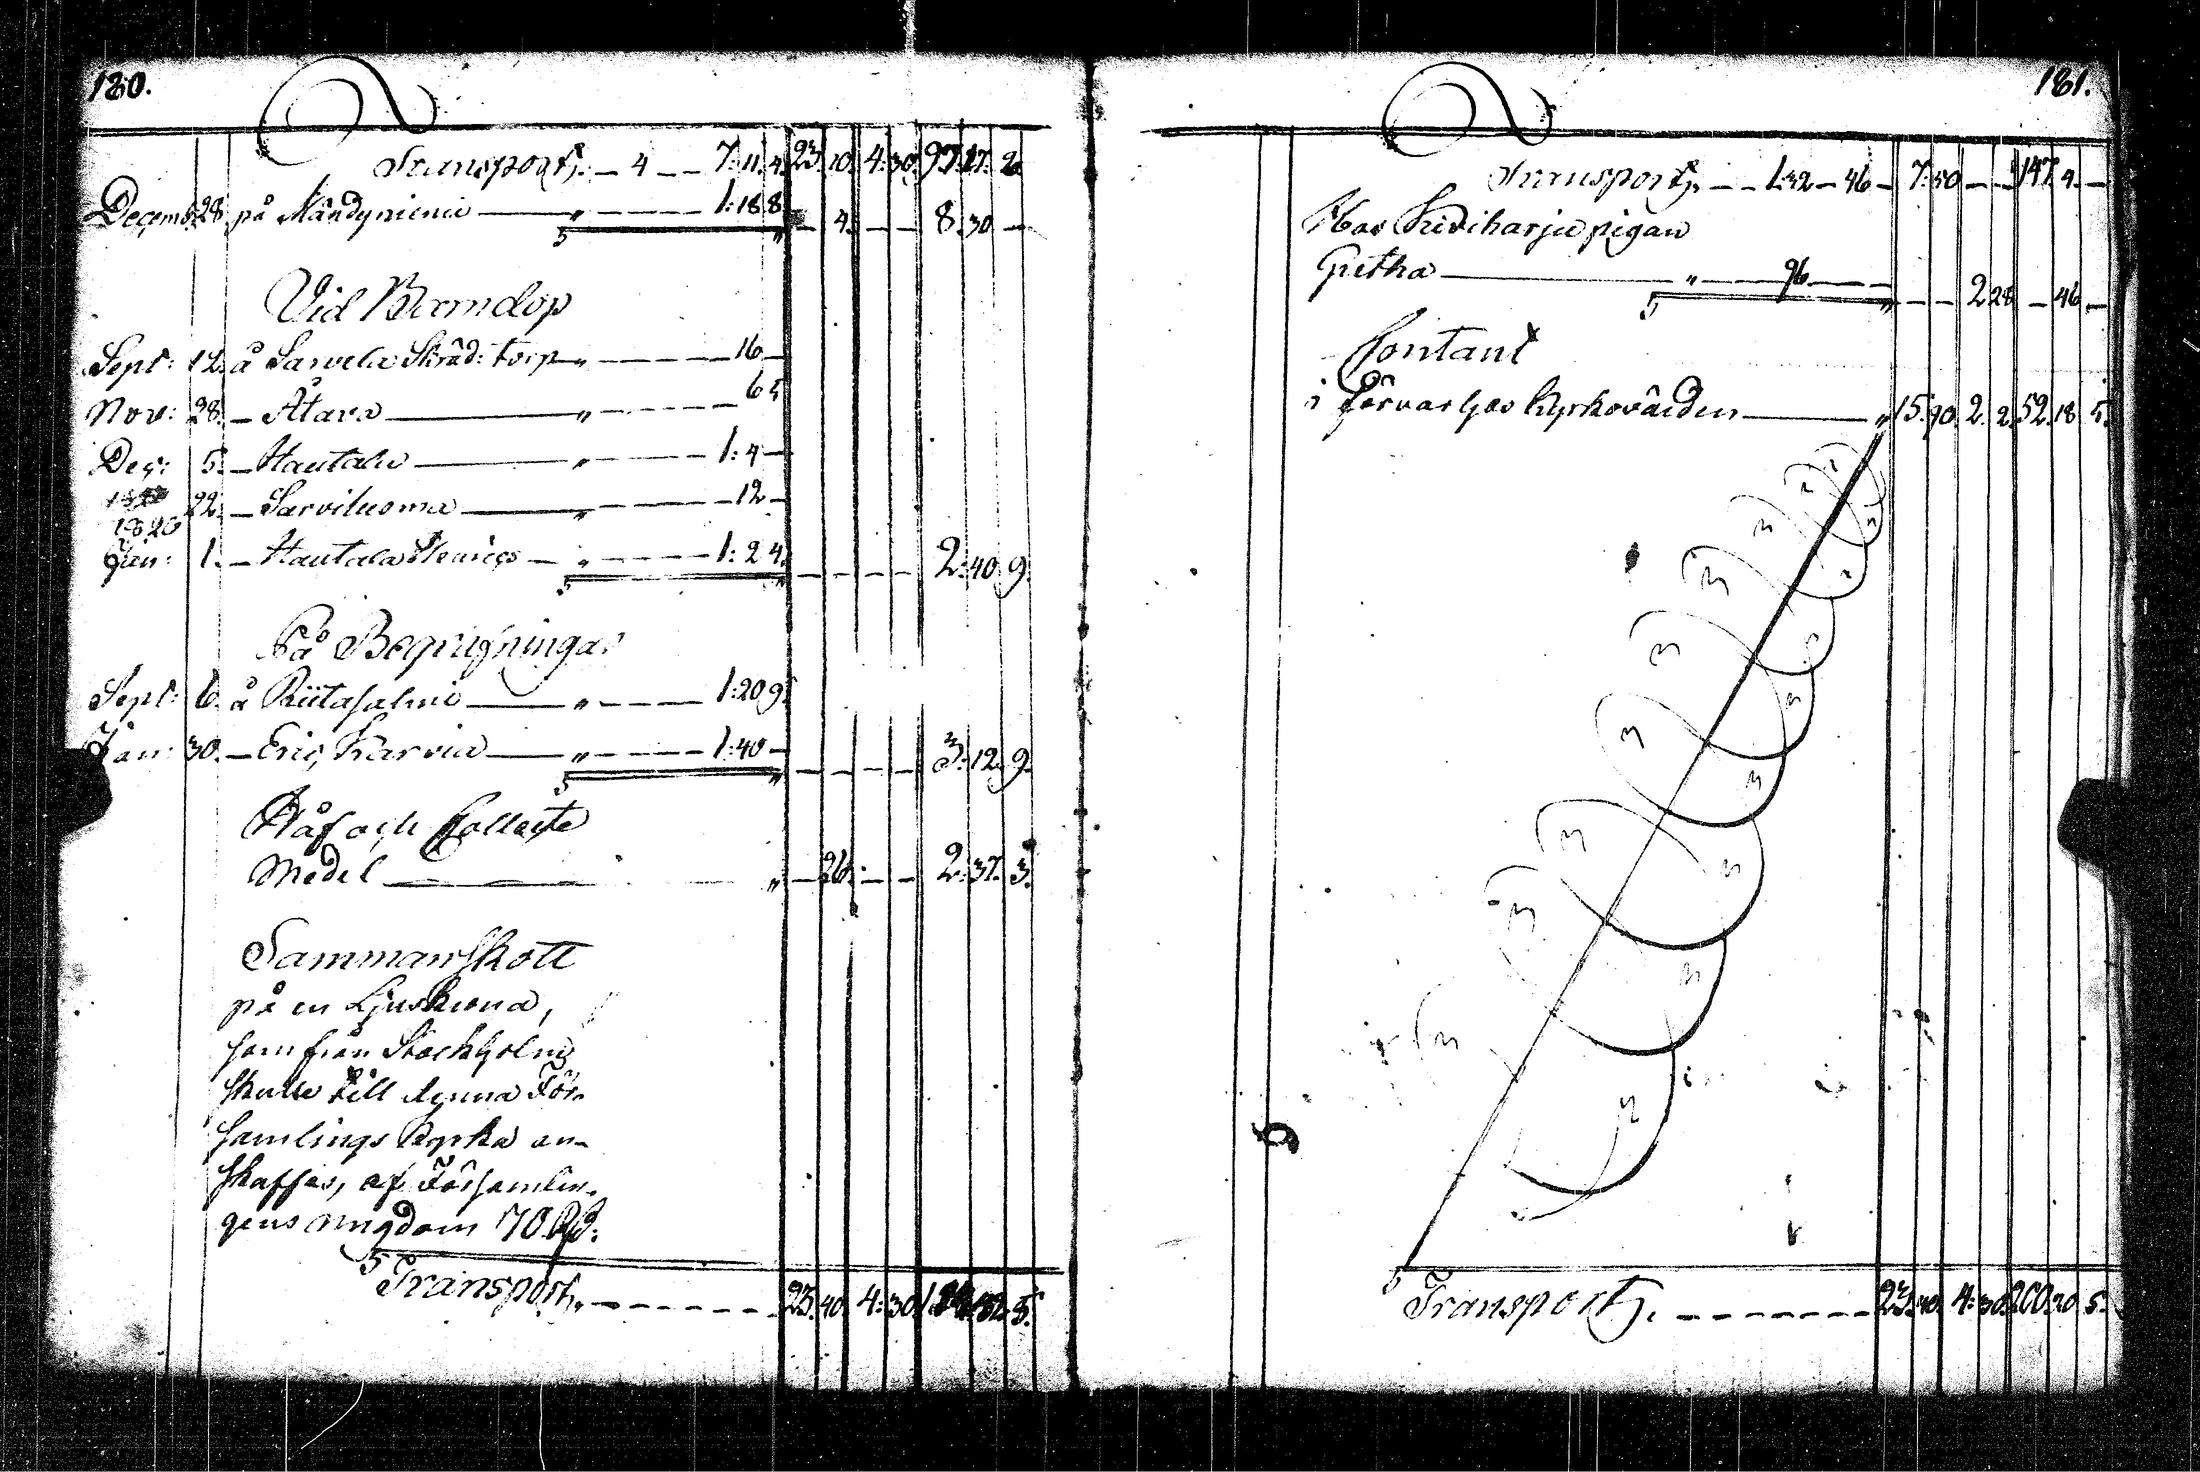 180.
Transport, – 4 – – 7: 11. 4. 23. 10. 4: 30. 97. 17. 2
Decemb. 28. på Mändyniemi — „ — 1: 18 8 – 4. – – 8. 30 –
Vid Barndop
Sept: 12. å Sarvela Skräd: torp „ – – – 16 –
Nov: 28. – Åtava — „ – – – 6 5
Dec: 5. – Hautala — „ – – – 1: 4 –
22. – Sarviluoma — „ – – – 12 –
1820
Jan: 1. – Hautala Henrics – „ – – – 1: 2 4. – – – – 2: 40. 9.
På Begrafningar
Sept: 6. å Riitasalmi — „ – – – 1: 20 9.
Jan: 30. – Eric Karvia — „ – – – 1: 40 – – – – – 3: 12. 9.
Håf och Collecte
Medel — „ – 26. – – 2: 37. 3.
Sammanskott
på en Ljuskrona,
som från Stockholm
skulle till denna För-
samlings Kyrka an-
skaffas, af Församlin-
gens ungdom 70 Rd:
Transport, – – – – – 23. 40. 4: 30. 5.
181.
Transport, – – 132 – 46 – 7: 50 – – 147. 4. –
Hos Kiviharju pigan
Gretha — „ – 96 – – – 2 28 – 46 –
Contant
i förvar hos Kyrkovärden — „ 15. 90. 2. 2. 52. 18 5.
Transport, – – – – – 23. 40. 4: 30. 200. 20 5.